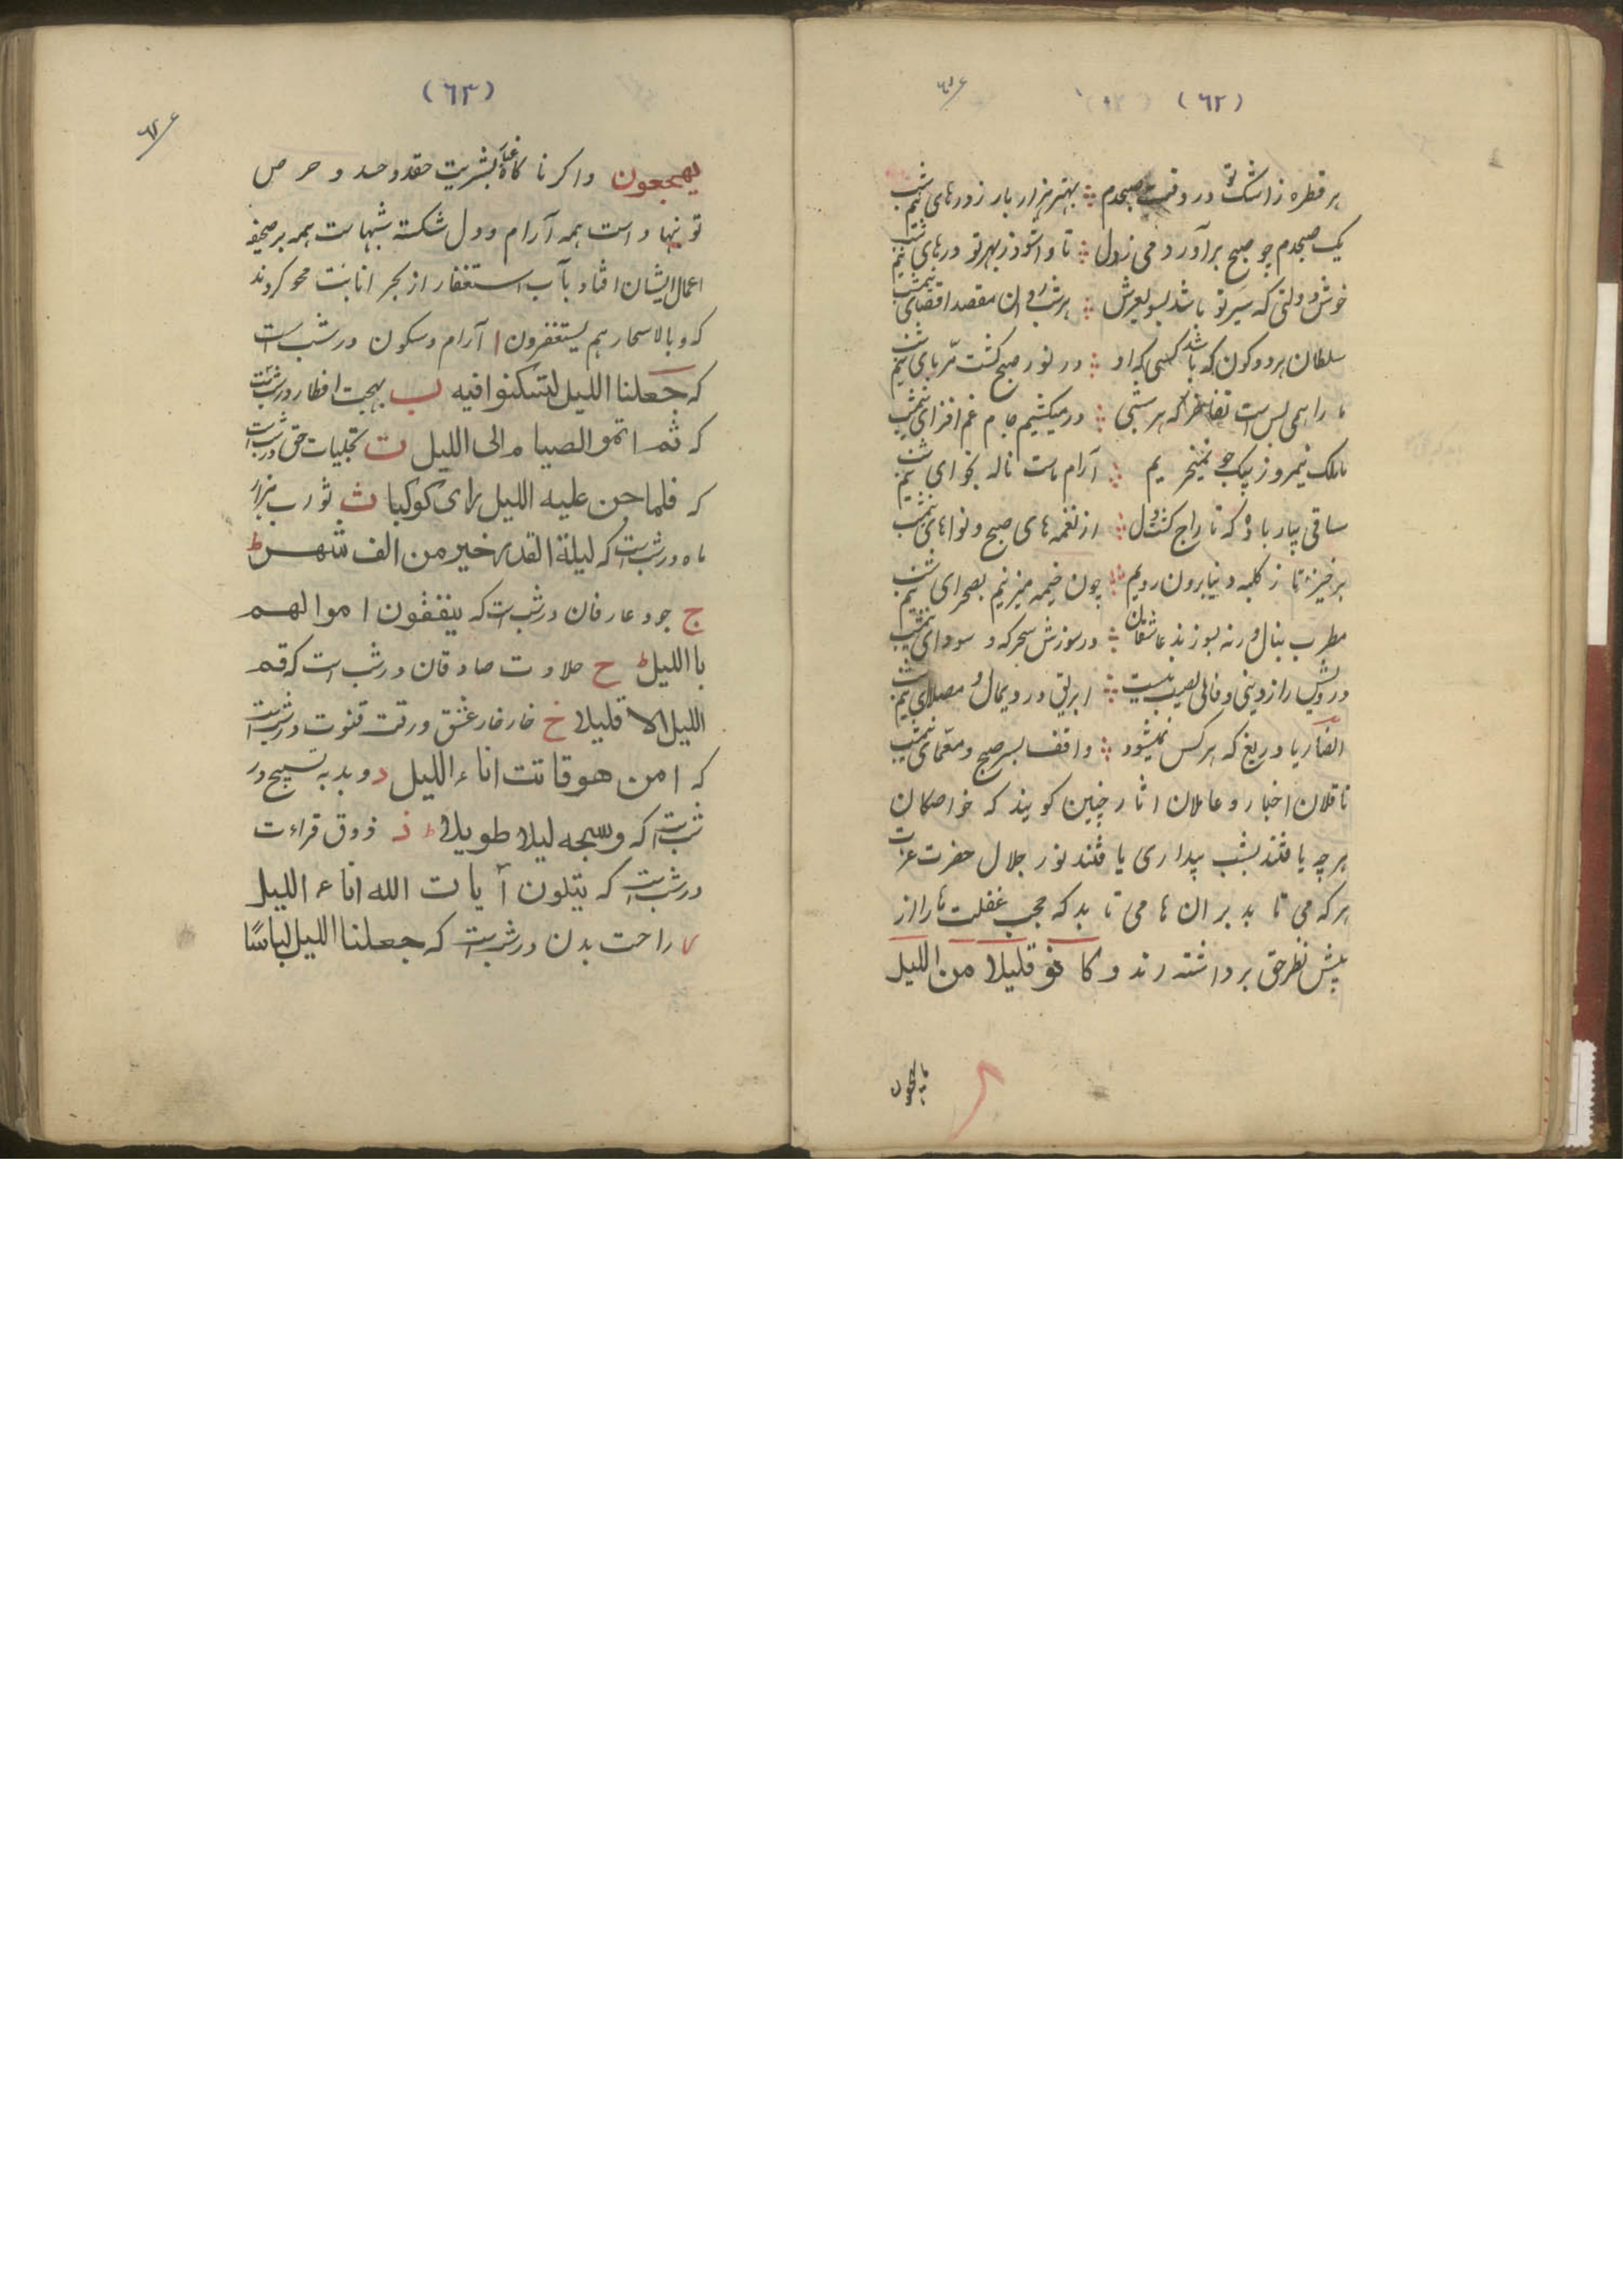 (٦٢)
هر قطره ز اشک تو در وقت صبحدم ؞ بهتر هزار بار ز درهای نیم شب
یک صبحدم چو صبح برآور دمی ز دل ؞ تا وا شود ز بهر تو درهای نیم شب
خوش دولتی که سیر تو باشد بسوی عرش ؞ هر شب مقصد اقصای نیم شب
سلطان هر دو کون که باشد کسی که او ؞ در نور صبح کشت نیم شب
ما را همی بس است تفاخر که هر شبی ؞ در میکشیم جام غم افزای نیم شب
ما ملک نیمروز بیک جو نمیخریم ؞ آرام ماست ناله نجوای نیم شب
ساقی بیار باده که تاراج کشت دل ؞ از نغمه های صبح و نواهای نیم شب
برخیز تا ز کلبه دنیا برون رویم ؞ چون خیمه میزنیم بصحرای نیم شب
مطرب بنال ورنه بسوزند عاشقان ؞ در سوزش سحرکه و سودای نیم شب
درویش را ز دینی و فانی نصیب نیست ؞ ابریق و درد و مصلای نیم شب
انصاریا دریغ که هر کس نمیشود ؞ واقف بسر صبح و معمای نیم شب
ناقلان اخبار و عاملان اثار چنین کویند که خواصکان
هر چه یافتند بشب بیداری یافتند نور جلال حضرت عزت
هر که می تابد بر ان ها می تابد که حجب غفلت ها را از
پیش نظر حق برداشته اند و کانو قلیلا من اللیل
ما یهجعون
(٦٣)
یهجعون و اکر ناکاه بشریت حقد و حسد و حرص
تو نهاد است همه آرام و دل شکسته شبهاست همه بر صحیفه
اعمال ایشان افتاد بآب استغفار از بحر انابت محو کردند
که و بالاسحار هم یستغفرون ا آرام و سکون در شب است
که جعلنا اللیل لتسکنوا فیه ب بهجت افطار در شب است
که ثم اتموا الصیام الی اللیل ت تجلیات حق در شب است
که فلما جن علیه اللیل رای کوکبا ث ثورب هزار
ماه در شب است که لیلة القدر خیر من الف شهر ط
ج جود عارفان در شب است که ینفقون اموالهم
باللیل ط ح حلاوت صادقان در شب است که قم
اللیل الا قلیلا خ خار خار عشق و رقت قنوت در شب است
که امن هو قانت اناء اللیل د و بدبه تسبیح در
شب است که و سبحه لیلا طویلا ط ذ ذوق قراءت
در شب است که یتلون آیات الله اناء اللیل
ر راحت بدن در شب است که جعلنا اللیل لباسًا